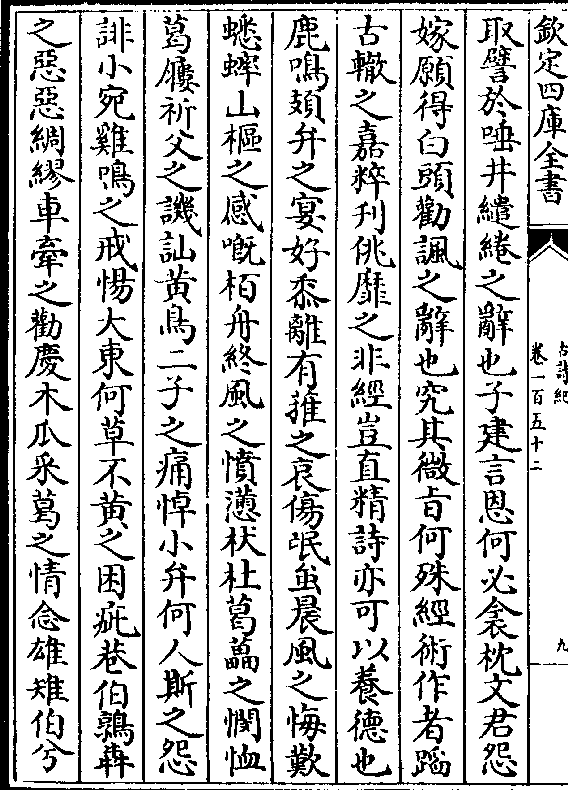 欽定四庫全書
古詩紀
卷一百五十二
九
取譬於唾井繾綣之辭也子建言恩何必衾枕文君怨
嫁願得白頭勸諷之辭也究其微旨何殊經術作者蹈
古轍之嘉粹刋佻靡之非經豈直精詩亦可以養德也
鹿鳴頍弁之宴好黍離有蓷之哀傷氓蚩晨風之悔歎
蟋蟀山樞之感嘅栢舟終風之憤懣杕杜葛藟之憫恤
葛屨祈父之譏訕黄鳥二子之痛悼小弁何人斯之怨
誹小宛雞鳴之戒惕大東何草不黄之困疵巷伯鶉奔
之惡惡綢繆車舝之勸慶木瓜采葛之情念雄雉伯兮